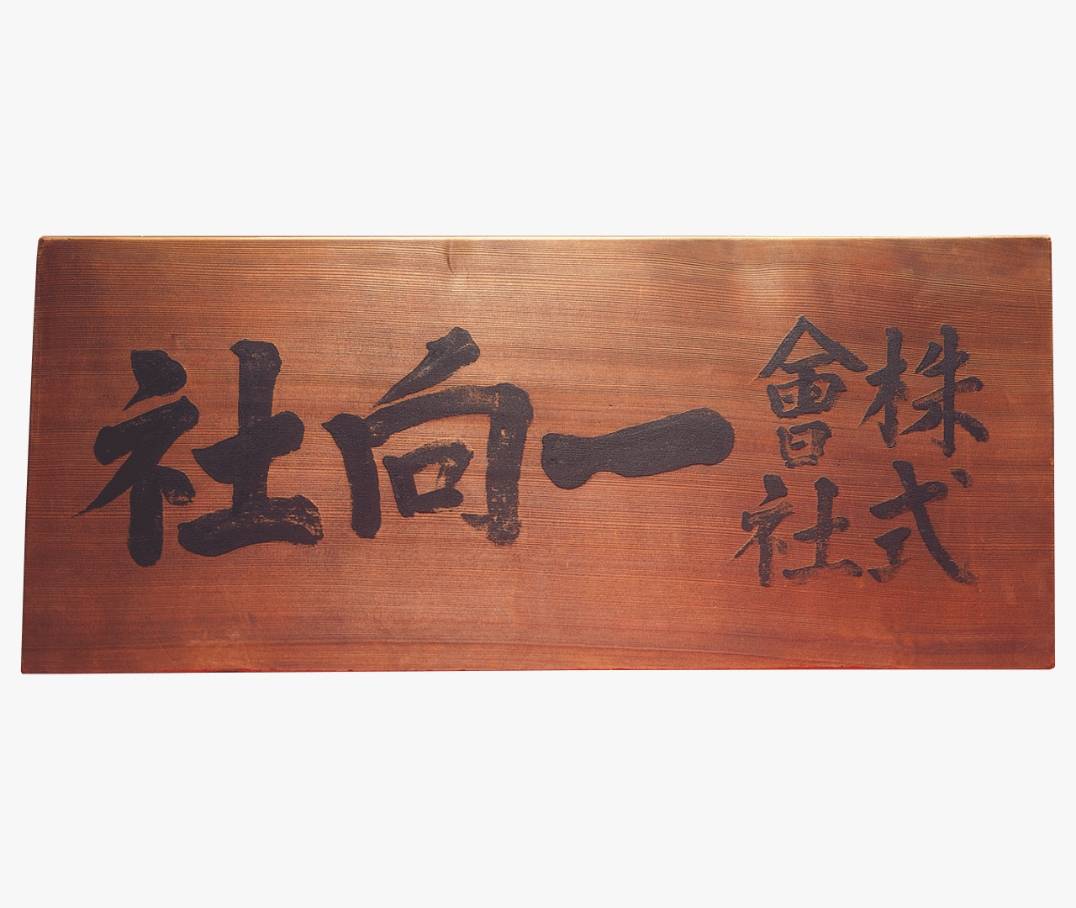 株式
會社
一向社